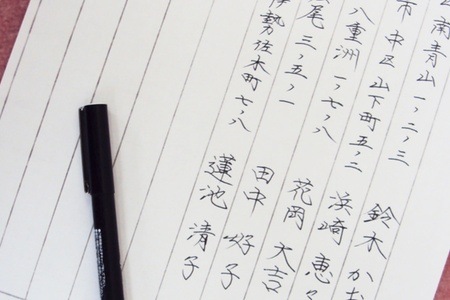 南青山一ノ二ノ三 鈴木 か
市中区山下町五ノ二 浜崎 恵
八重洲一ノ七ノ八 花岡 大吉
尾三ノ五ノ一 田中 好子
伊勢佐木町七ノ八 蓮池 清子